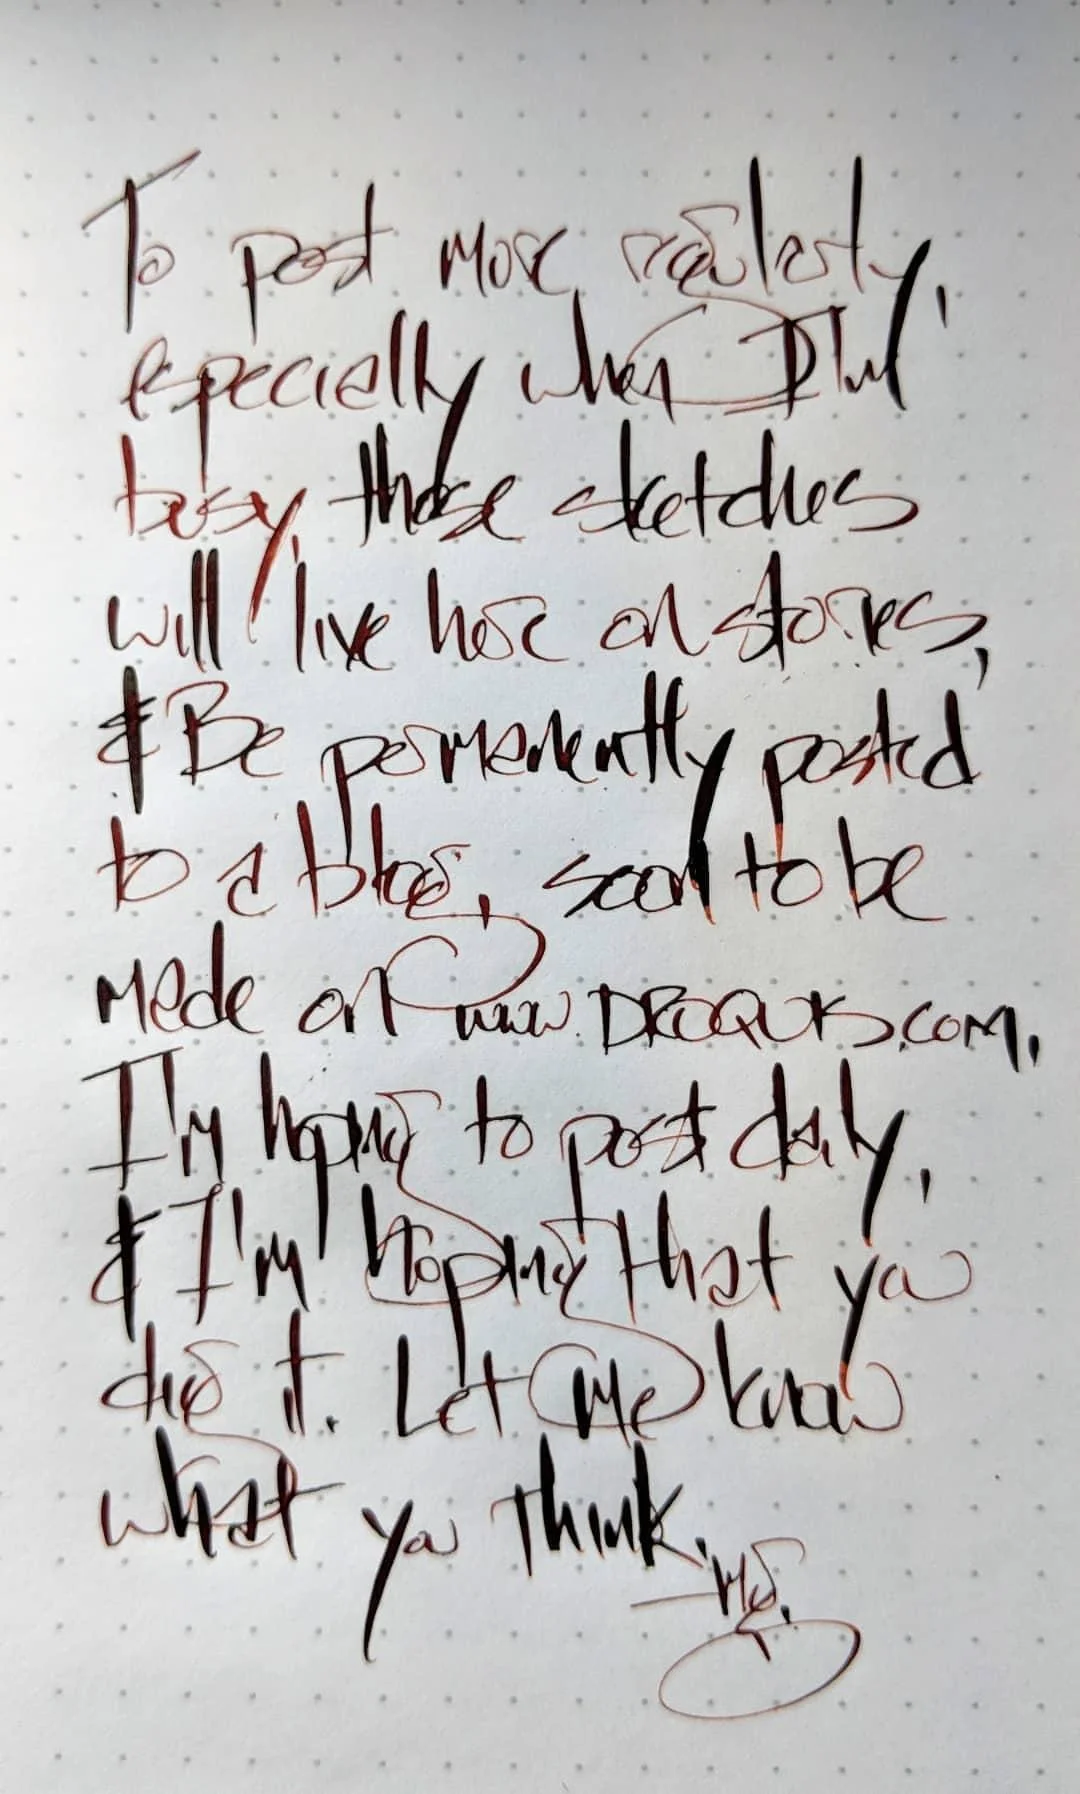 To post more regularly,
especially when I'm
busy, these sketches
will live here on stories,
& Be permanently posted
to a blog, soon to be
made on www.DROQUKS.com.
I'm hoping to post daily,
& I'm hoping that you
dig it. Let me know
what you think.